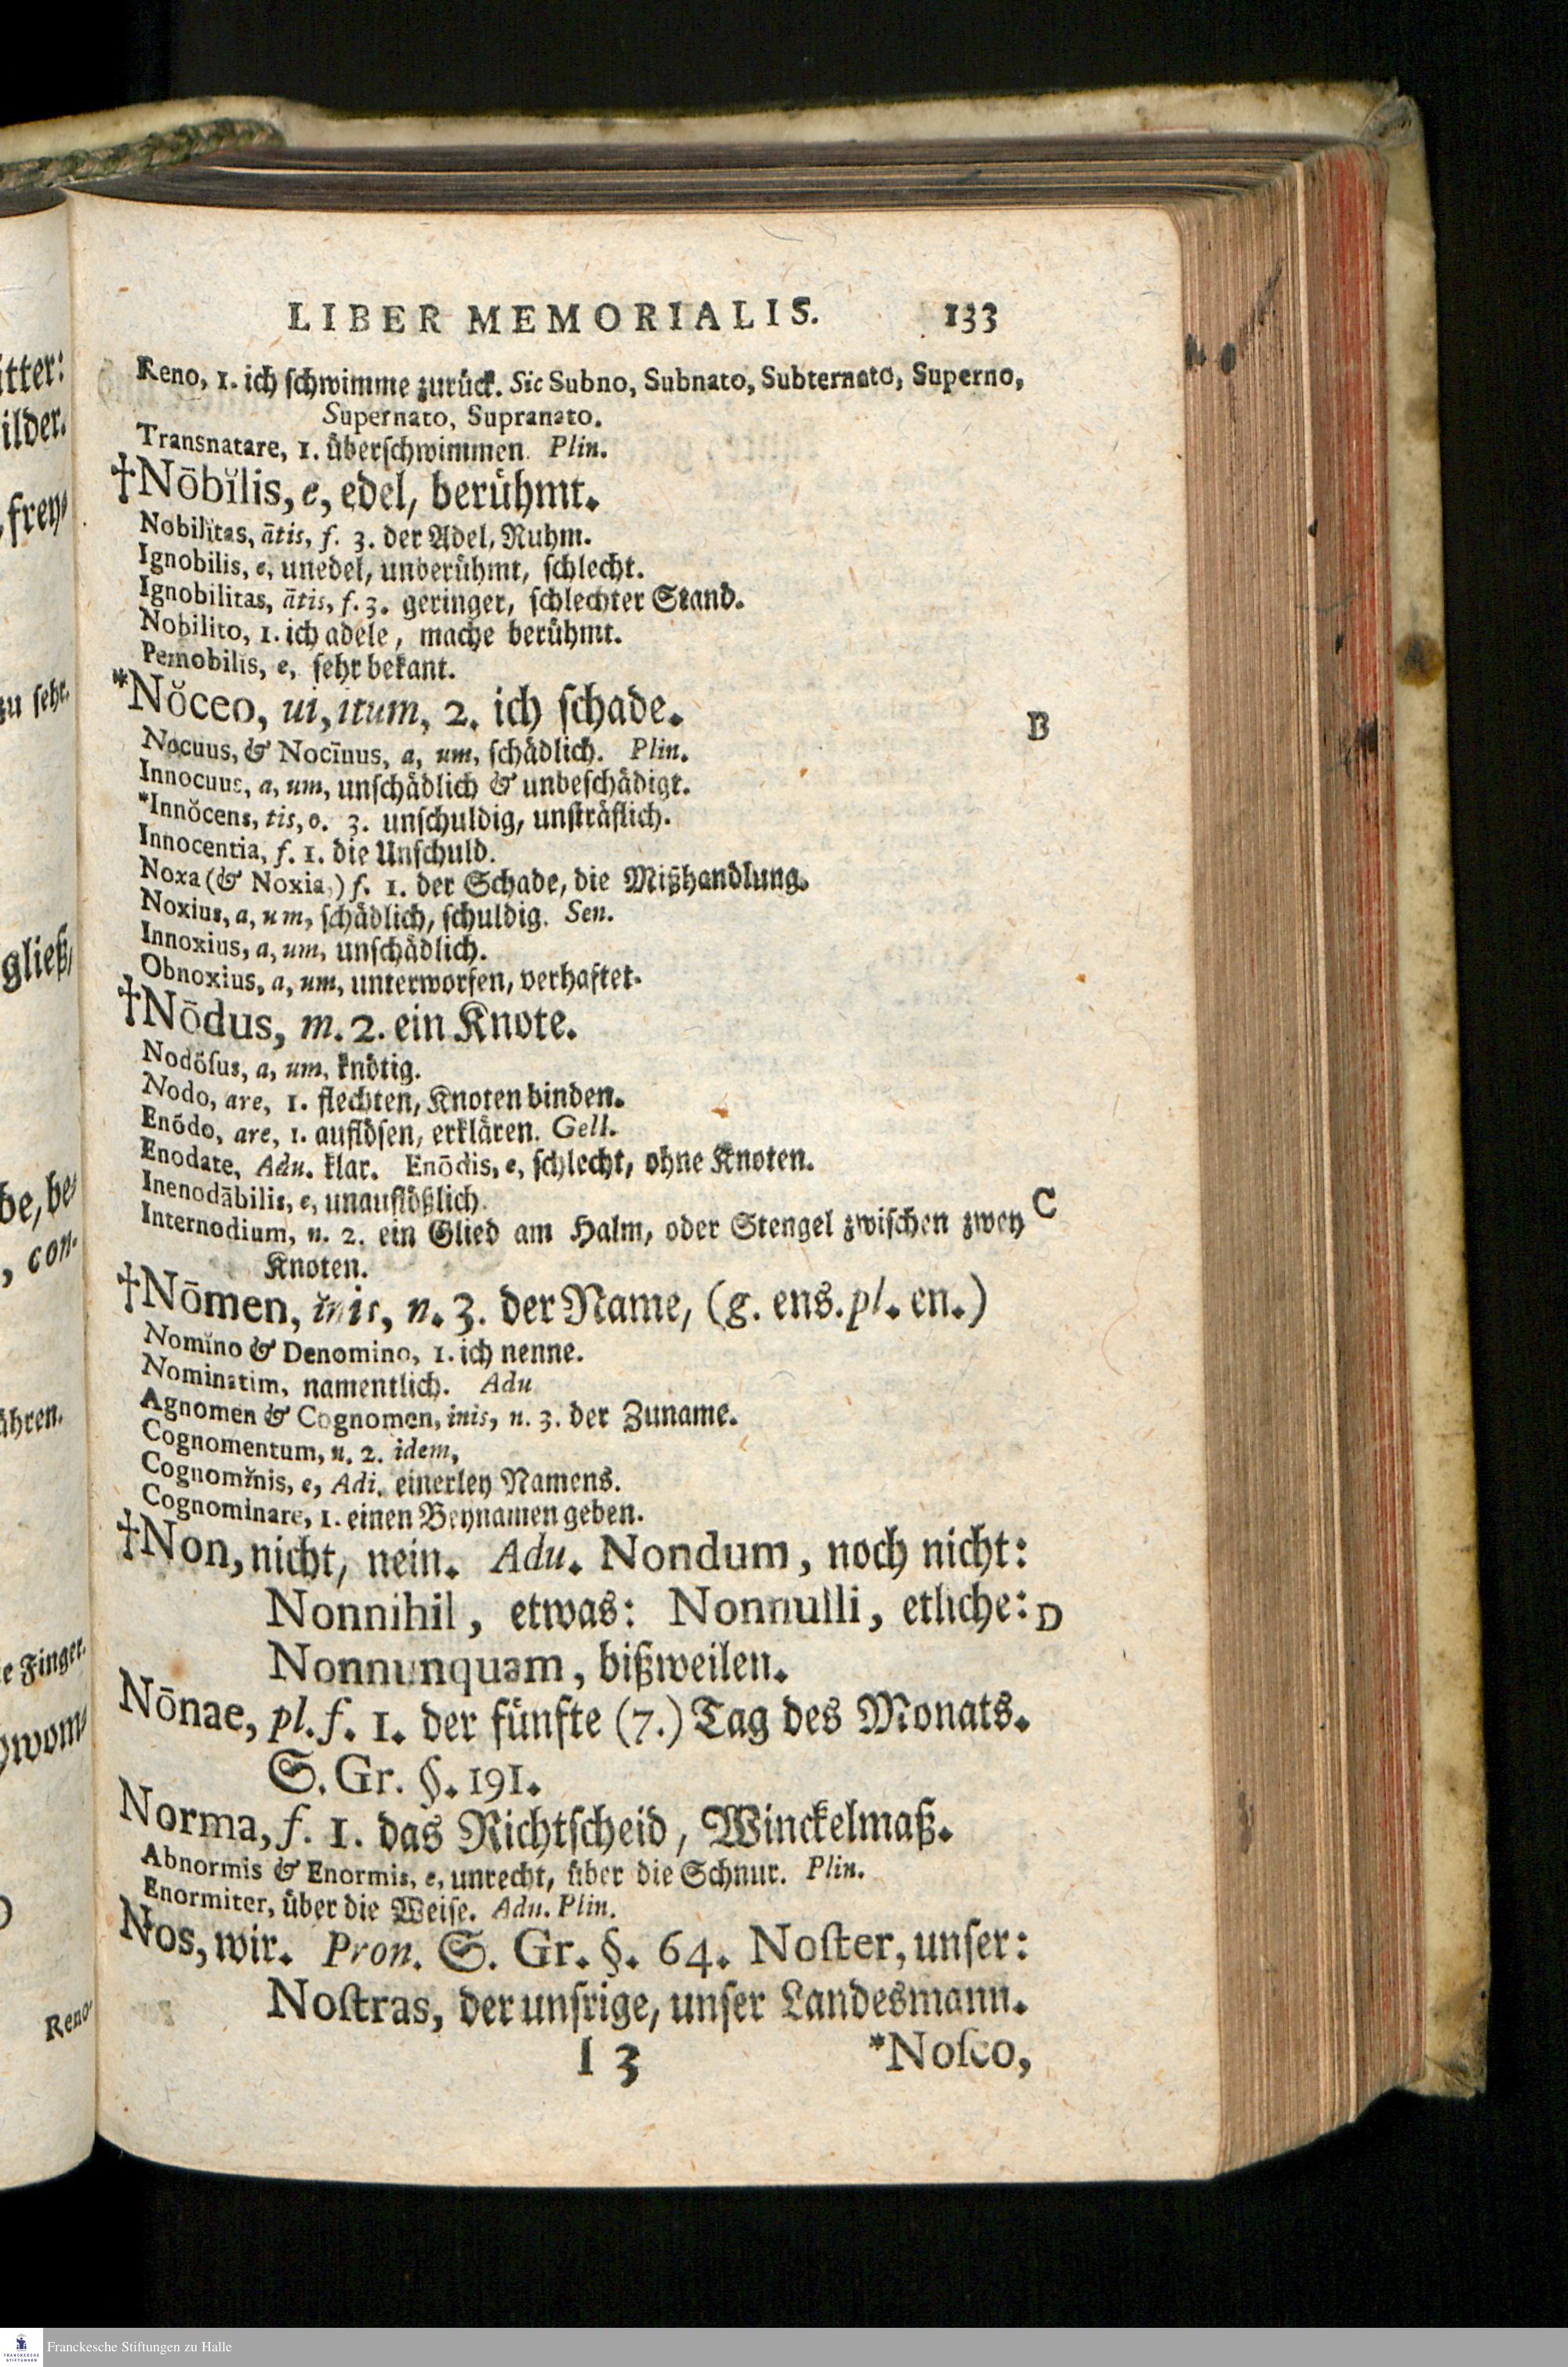 LIBER MEMORIALIS. 133
Reno, 1. ich ſchwimme zurück. Sic Subno, Subnato, Subternato, Superno,
Supernato, Supranato.
Transnatare, 1. überſchwimmen. Plin.
†Nōbĭlis, e, edel, berühmt.
Nobilĭtas, ātis, f. 3. der Adel, Ruhm.
Ignobilis, e, unedel, unberühmt, ſchlecht.
Ignobilitas, ātis, f. 3. geringer, ſchlechter Stand.
Nobilito, 1. ich adele, mache berühmt.
Pernobilis, e, ſehr bekant.
*Nŏceo, ui, itum, 2. ich ſchade.
B
Nocuus, & Nocīuus, a, um, ſchädlich. Plin.
Innocuus, a, um, unſchädlich & unbeſchädigt.
*Innŏcens, tis, o. 3. unſchuldig, unſträflich.
Innocentia, f. 1. die Unſchuld.
Noxa (& Noxia,) f. 1. der Schade, die Mißhandlung.
Noxius, a, um, ſchädlich, ſchuldig. Sen.
Innoxius, a, um, unſchädlich.
Obnoxius, a, um, unterworfen, verhaftet.
†Nōdus, m. 2. ein Knote.
Nodōſus, a, um, knötig.
Nodo, are, 1. flechten, Knoten binden.
Enōdo, are, 1. auflöſen, erklären. Gell.
Enodate, Adu. klar. Enōdis, e, ſchlecht, ohne Knoten.
Inenodābilis, e, unauflößlich.
C
Internodium, n. 2. ein Glied am Halm, oder Stengel zwiſchen zwey
Knoten.
†Nōmen, ĭnis, n. 3. der Name, (g. ens. pl. en.)
Nomĭno & Denomino, 1. ich nenne.
Nominatim, namentlich. Adu
Agnomen & Cognomen, inis, n. 3. der Zuname.
Cognomentum, n. 2. idem,
Cognomĭnis, e, Adi. einerley Namens.
Cognominare, 1. einen Beynamen geben.
†Non, nicht, nein. Adu. Nondum, noch nicht:
Nonnihil, etwas: Nonnulli, etliche: D
Nonnunquam, bißweilen.
Nōnae, pl. f. 1. der fünfte (7.) Tag des Monats.
S. Gr. §. 191.
Norma, f. 1. das Richtſcheid, Winckelmaß.
Abnormis & Enormis, e, unrecht, über die Schnur. Plin.
Enormiter, über die Weiſe. Adu. Plin.
Nos, wir. Pron. S. Gr. §. 64. Noſter, unſer:
Noſtras, der unſrige, unſer Landesmann.
I 3 *Noſco,
itter:
ilder.
frey⸗
zu ſehr.
gließ/
be, be⸗
, con-
ähren.
e Finger.
Reno-
Franckesche Stiftungen zu Halle
FRANCKESCHE
STIFTUNGEN